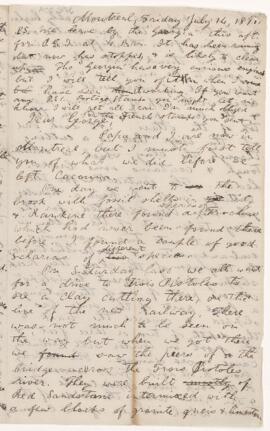 Montreal, Friday July 14, 1871.
We leave by the Georgia this aft.
for at 4. It has been raining
but now has stopped & is likely to clear
The Georgia has very curious engines
but I will tell you of them when I
have seen them working. If you want
any P.E.I. postage stamps you might let me
know & I will get it
the French stamps you sent
Dear George,
Papa and I are now in
Montreal but I must first tell
you of what we did before we
left Cacouna.
One day we went to the
brook with fossil shells
& Rankine there found
which had never been found there
before. I found a couple of good
of different species.
On Saturday last we all went
for a drive to Trois Pistoles to
see a clay cutting there on the
line of the new Railway. There
was not much to be seen on
the way but when we got there
we found saw the piers of a the
bridge across the Trois Pistoles
river. They were built mostly of
Red Sandstone intermixed with
a few blocks of granite, gneiss & limestone